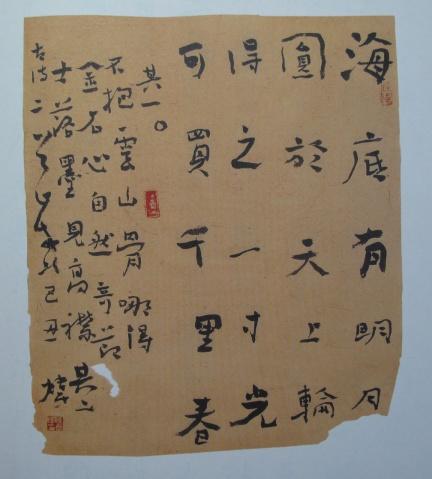 海底有明月
圓於天上輪
得之一寸光
可買千里春
其一
不抱雲山骨哪得
金石心自然奇節
士落墨見高襟其二
古诗二 己丑